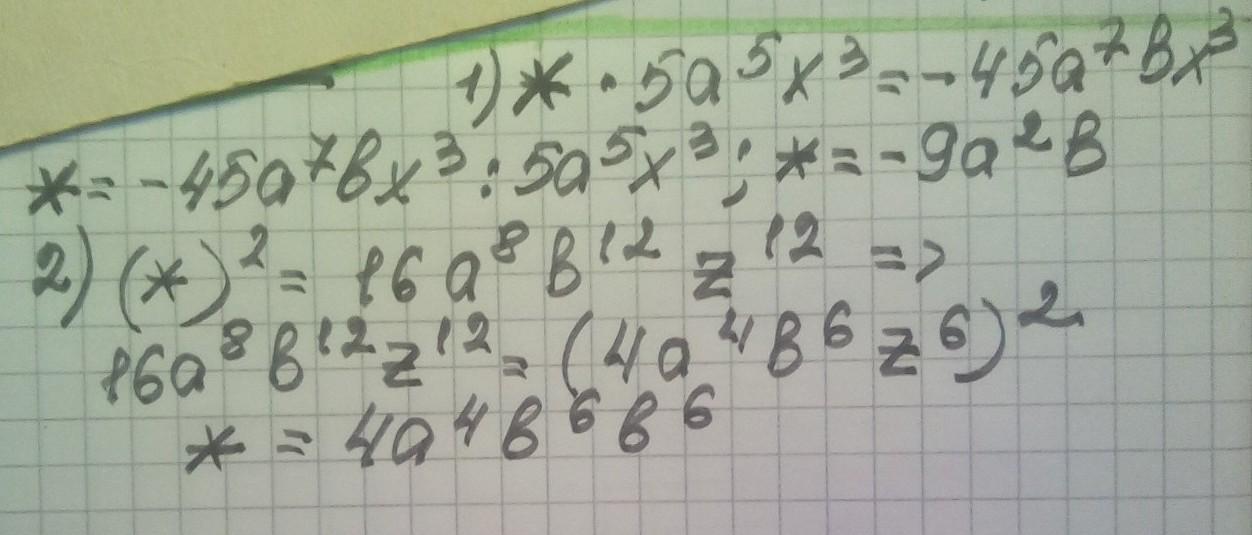 1) * · 5a⁵x³ = -45a⁷bx³
* = -45a⁷bx³ : 5a⁵x³ ; * = -9a²b
2) (*)² = 16a⁸b¹²z¹² =>
16a⁸b¹²z¹² = (4a⁴b⁶z⁶)²
* = 4a⁴b⁶b⁶